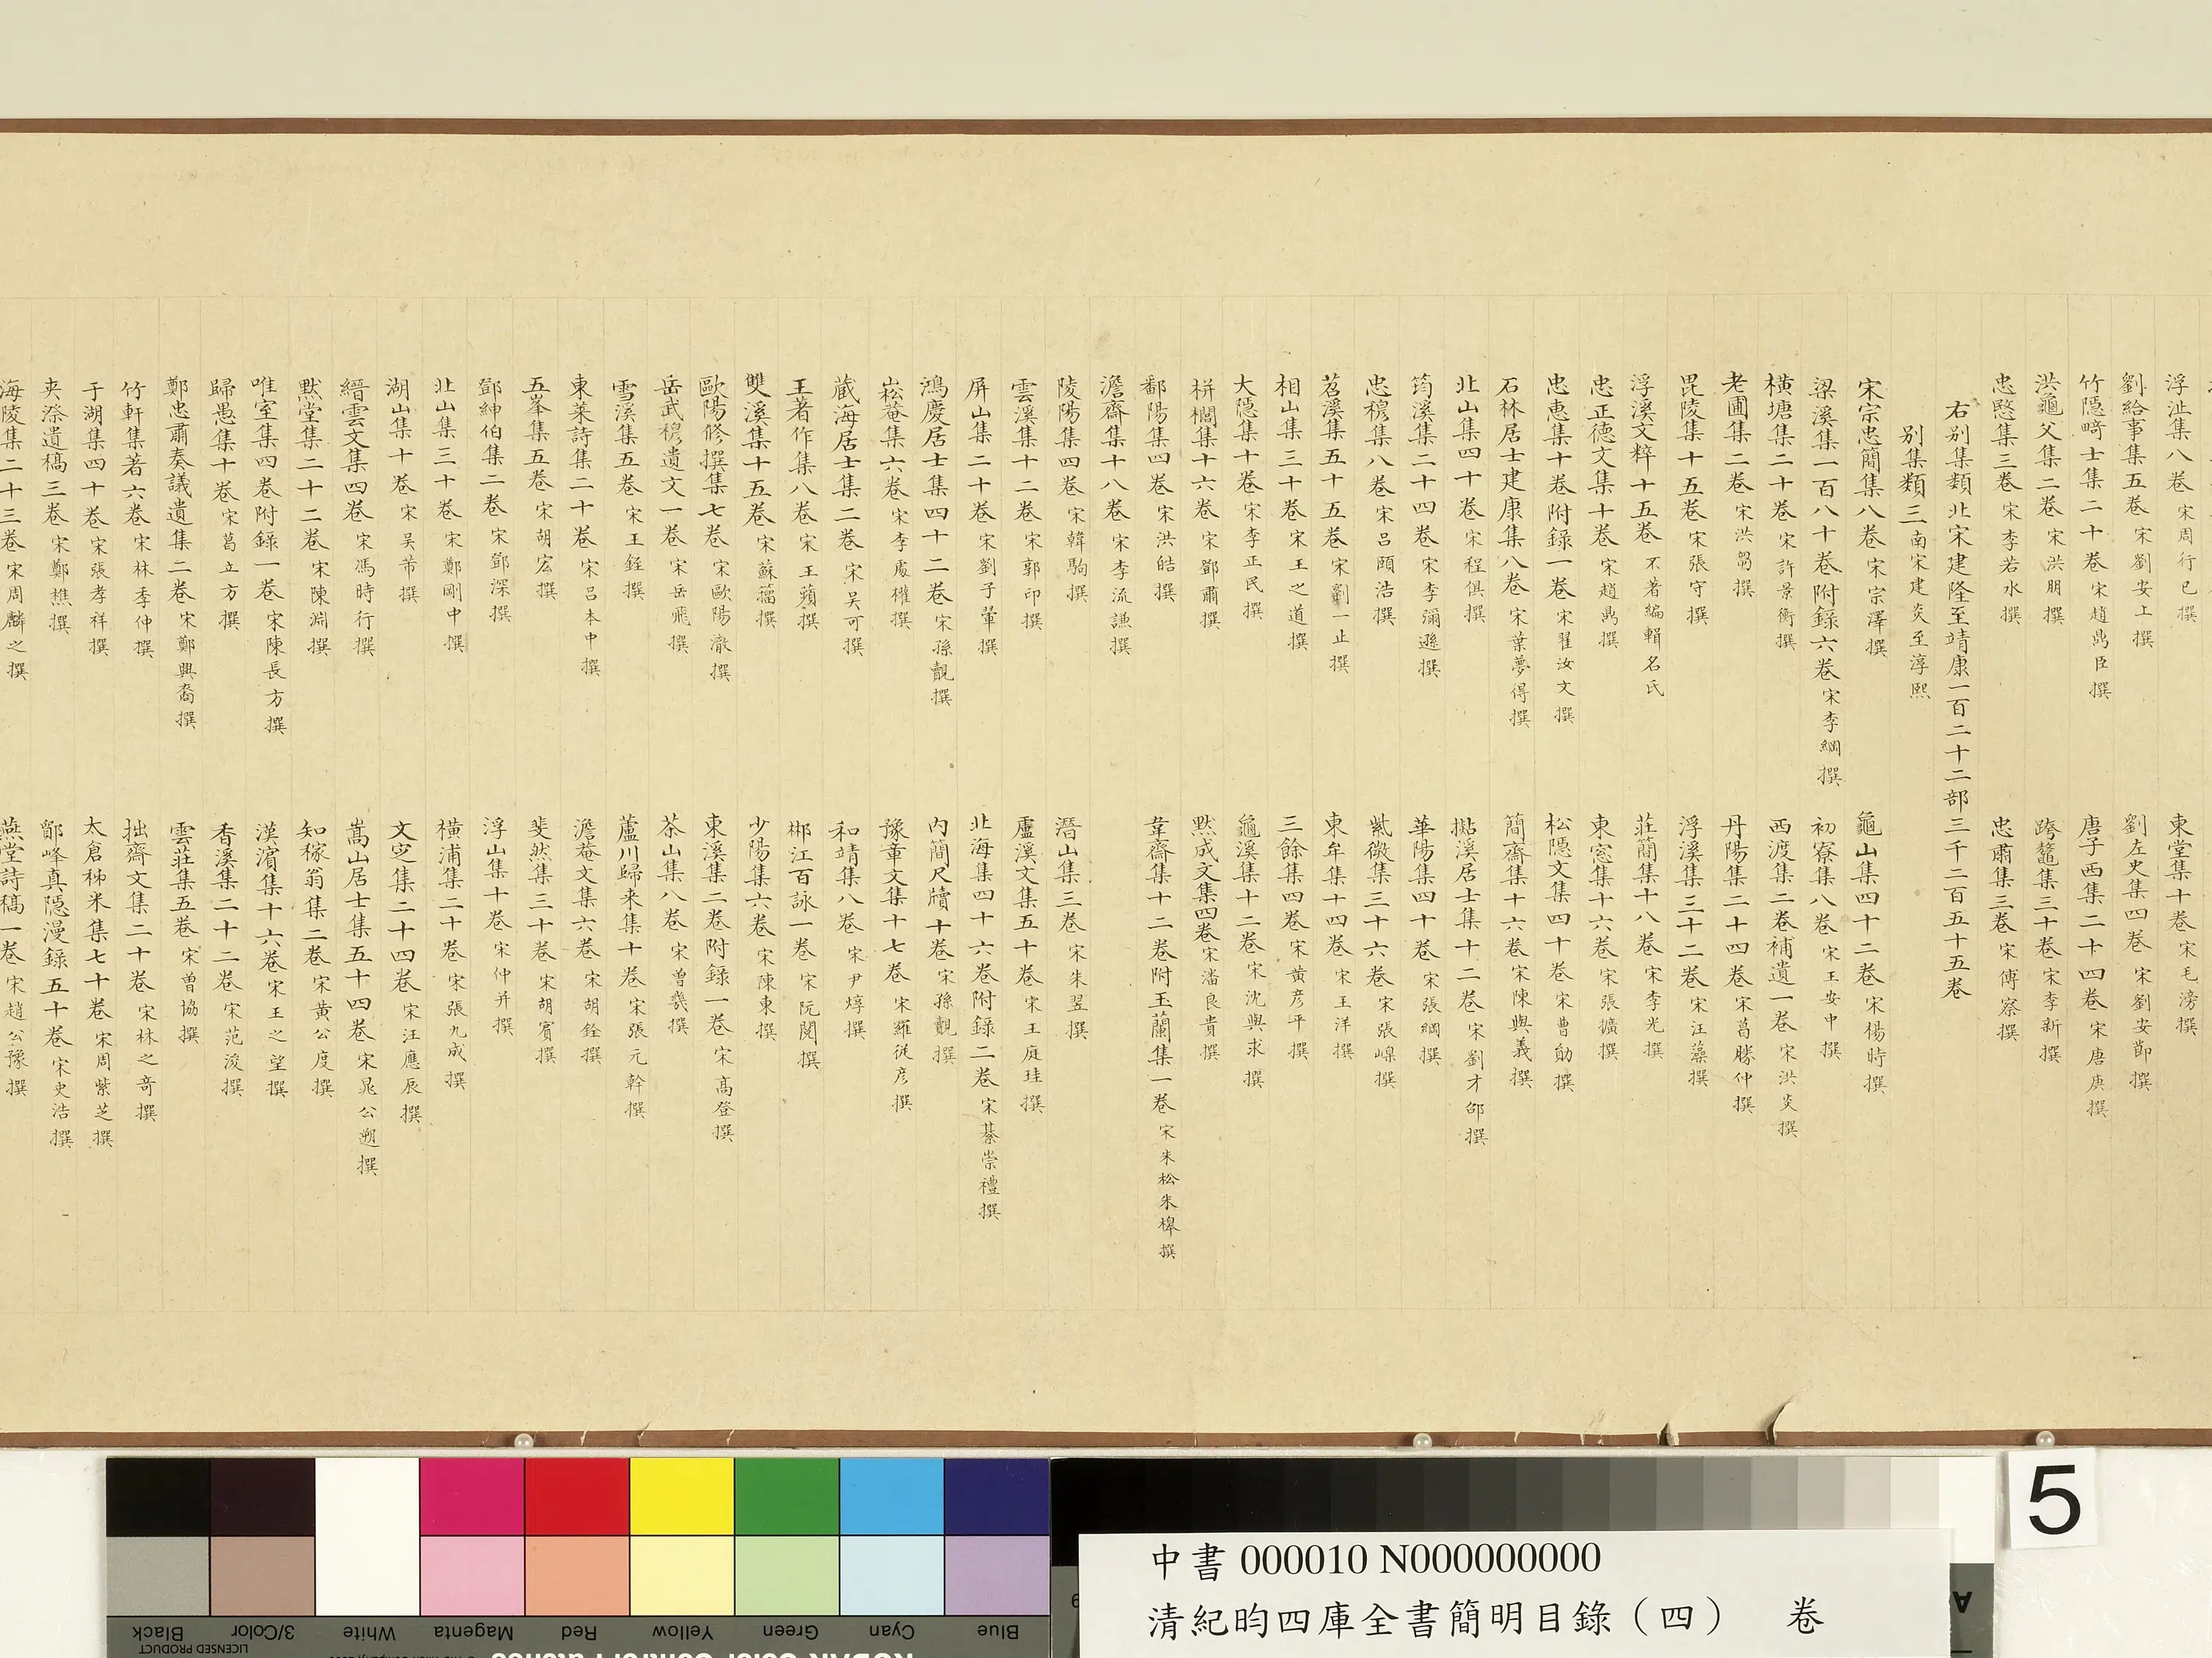 浮沚集八卷 宋周行已撰
東堂集十卷 宋毛滂撰
劉給事集五卷 宋劉安上撰
劉左史集四卷 宋劉安節撰
竹隱畸士集二十卷 宋趙鼎臣撰
唐子西集二十四卷 宋唐庚撰
洪龜父集二卷 宋洪朋撰
跨鼇集三十卷 宋李新撰
忠愍集三卷 宋李若水撰
忠肅集三卷 宋傅察撰
右别集類北宋建隆至靖康一百二十二部三千二百五十五卷
别集類三 南宋建炎至淳熙
宋宗忠簡集八卷 宋宗澤撰
龜山集四十二卷 宋楊時撰
梁溪集一百八十卷附錄六卷 宋李綱撰
初寮集八卷 宋王安中撰
橫塘集二十卷 宋許景衡撰
西渡集二卷補遺一卷 宋洪炎撰
老圃集二卷 宋洪芻撰
丹陽集二十四卷 宋葛勝仲撰
毘陵集十五卷 宋張守撰
浮溪集三十二卷 宋汪藻撰
浮溪文粹十五卷 不著編輯名氏
莊簡集十八卷 宋李光撰
忠正德文集十卷 宋趙鼎撰
東窓集十六卷 宋張擴撰
忠惠集十卷附錄一卷 宋翟汝文撰
松隱文集四十卷 宋曹勛撰
石林居士建康集八卷 宋葉夢得撰
簡齋集十六卷 宋陳與義撰
北山集四十卷 宋程俱撰
檆溪居士集十二卷 宋劉才邵撰
筠溪集二十四卷 宋李彌遜撰
華陽集四十卷 宋張綱撰
忠穆集八卷 宋吕頤浩撰
紫微集三十六卷 宋張嵲撰
苕溪集五十五卷 宋劉一止撰
東牟集十四卷 宋王洋撰
相山集三十卷 宋王之道撰
三餘集四卷 宋黃彦平撰
大隱集十卷 宋李正民撰
龜溪集十二卷 宋沈與求撰
栟櫚集十六卷 宋鄧肅撰
默成文集四卷 宋潘良貴撰
鄱陽集四卷 宋洪皓撰
韋齋集十二卷附玉蘭集一卷 宋朱松朱槔撰
澹齋集十八卷 宋李流謙撰
陵陽集四卷 宋韓駒撰
潛山集三卷 宋朱翌撰
雲溪集十二卷 宋郭印撰
盧溪文集五十卷 宋王庭珪撰
屏山集二十卷 宋劉子翬撰
北海集四十六卷附錄二卷 宋綦崇禮撰
鴻慶居士集四十二卷 宋孫覿撰
内簡尺牘十卷 宋孫覿撰
崧菴集六卷 宋李處權撰
豫章文集十七卷 宋羅從彦撰
藏海居士集二卷 宋吴可撰
和靖集八卷 宋尹焞撰
王著作集八卷 宋王蘋撰
郴江百詠一卷 宋阮閱撰
雙溪集十五卷 宋蘇籀撰
少陽集六卷 宋陳東撰
歐陽修撰集七卷 宋歐陽澈撰
東溪集二卷附錄一卷 宋高登撰
岳武穆遺文一卷 宋岳飛撰
茶山集八卷 宋曾幾撰
雪溪集五卷 宋王銍撰
蘆川歸来集十卷 宋張元幹撰
東萊詩集二十卷 宋吕本中撰
澹菴文集六卷 宋胡銓撰
五峯集五卷 宋胡宏撰
斐然集三十卷 宋胡寅撰
鄧紳伯集二卷 宋鄧深撰
浮山集十卷 宋仲并撰
北山集三十卷 宋鄭剛中撰
橫浦集二十卷 宋張九成撰
湖山集十卷 宋吴芾撰
文定集二十四卷 宋汪應辰撰
縉雲文集四卷 宋馮時行撰
嵩山居士集五十四卷 宋晁公遡撰
默堂集二十二卷 宋陳淵撰
知稼翁集二卷 宋黃公度撰
唯室集四卷附錄一卷 宋陳長方撰
漢濱集十六卷 宋王之望撰
歸愚集十卷 宋葛立方撰
香溪集二十二卷 宋范浚撰
鄭忠肅奏議遺集二卷 宋鄭興裔撰
雲莊集五卷 宋曾協撰
竹軒集著六卷 宋林季仲撰
拙齋文集二十卷 宋林之奇撰
于湖集四十卷 宋張孝祥撰
太倉稊米集七十卷 宋周紫芝撰
夾漈遺稿三卷 宋鄭樵撰
鄮峰真隱漫錄五十卷 宋史浩撰
海陵集二十三卷 宋周麟之撰
燕堂詩稿一卷 宋趙公豫撰
5
中書 000010 N000000000
清紀昀四庫全書簡明目錄（四） 卷
Blue
Cyan
Green
Yellow
Red
Magenta
White
3/Color
Black
LICENSED PRODUCT